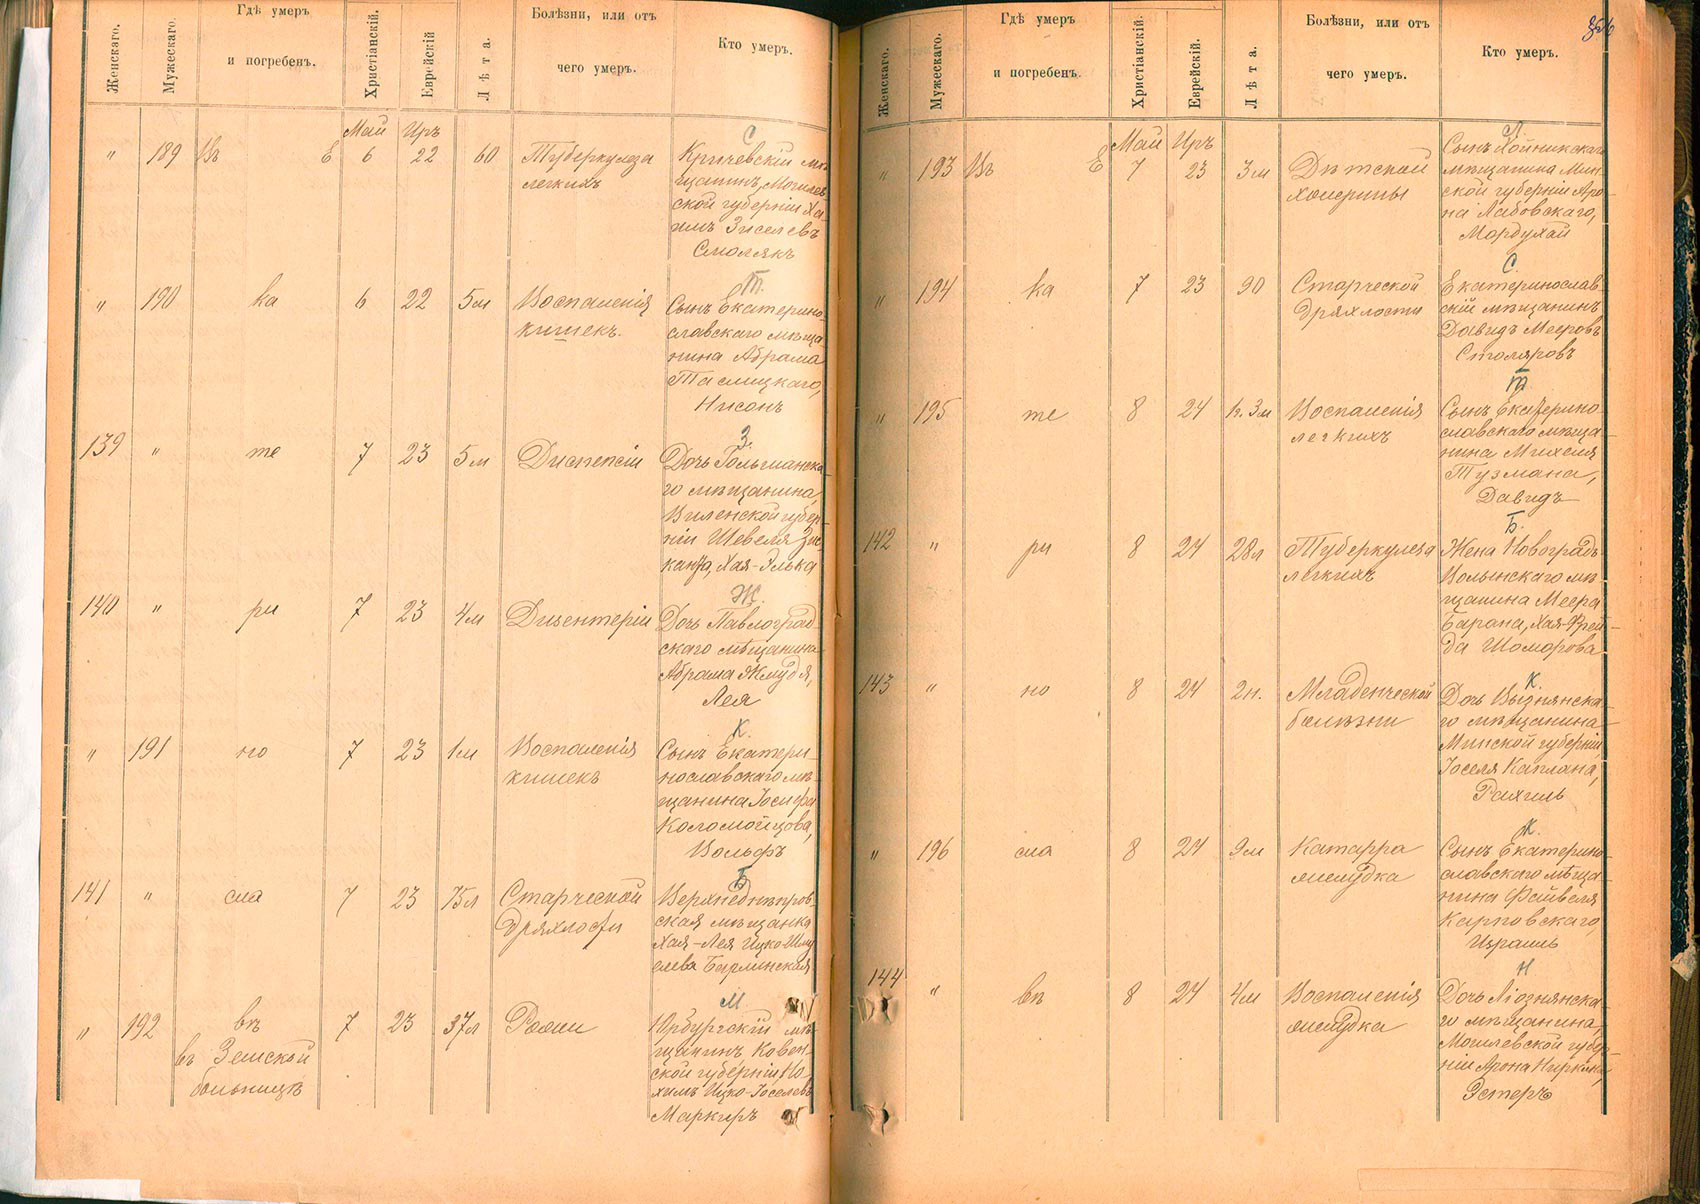 Женскаго.
Мужескаго.
Гдѣ умеръ
и погребенъ.
Христіанскій.
Еврейскій
Лѣта.
Болѣзни, или отъ
чего умеръ.
Кто умеръ.
Май Иръ
С
" 189 Въ Е 6 22 60 Туберкулеза
легкихъ
Кричевскій мѣ-
щанинъ, Могилев-
ской губерніи Ха-
имъ Зиселевъ
Смолякъ
Т.
" 190 ка 6 22 5м Воспаленія
кишекъ.
Сынъ Екатерино-
славскаго мѣща-
нина Абрама
Таслицкаго,
Нисонъ
З.
139 " те 7 23 5м Диспепсіи
Дочь Гольшанска-
го мѣщанина,
Виленской губер-
ніи Шевеля Зис-
канда, Хая-Элька
Ж.
140 " ри 7 23 4м Дизентеріи
Дочь Павлоград-
скаго мѣщанина
Абрама Жмудя,
Лея
К.
" 191 но 7 23 1м Воспаленія
кишекъ
Сынъ Екатери-
нославскаго мѣ-
щанина Іосифа
Коломойцова,
Вольфъ
Б
141 " сла 7 23 75л Старческой
дряхлости
Верхнеднѣпров-
ская мѣщанка
Хая-Лея Ицко-Шму-
елева Барлинская
М
" 192 въ 7 23 37л Рожи
въ Земской
больницѣ
Юрбургскій мѣ-
щанинъ Ковен-
ской губерніи Но-
химъ Ицко-Іоселевъ
Маркиръ
Женскаго.
Мужескаго.
Гдѣ умеръ
и погребенъ.
Христіанскій.
Еврейскій.
Лѣта.
Болѣзни, или отъ
чего умеръ.
Кто умеръ.
Май Иръ
Л.
" 193 Въ Е 7 23 3м Дѣтской
холерины
Сынъ Хойникскаго
мѣщанина Мин-
ской губерніи Аро-
на Лабовскаго,
Мордухай
С.
" 194 ка 7 23 90 Старческой
дряхлости
Екатеринослав-
скій мѣщанинъ
Давидъ Мееровъ
Столяровъ
Т.
" 195 те 8 24 1г. 3м Воспаленія
легкихъ
Сынъ Екатерино-
славскаго мѣща-
нина Михеля
Тузмана,
Давидъ
Б.
142 " ри 8 24 28л Туберкулеза
легкихъ
Жена Новоградъ
Волынскаго мѣ-
щанина Меера
Барана, Хая-Фрей-
да Шоморова
К.
143 " но 8 24 2н. Младенческой
болѣзни
Дочь Вызнянска-
го мѣщанина
Минской губерніи
Іоселя Каплана,
Рахиль
К.
" 196 сла 8 24 9м Катарра
желудка
Сынъ Екатерино-
славскаго мѣща-
нина Файвеля
Карповскаго,
Израиль
Н
144 " въ 8 24 4м Воспаленія
желудка
Дочь Ліознянска-
го мѣщанина,
Могилевской губер-
ніи Арона Ниркина,
Эстеръ